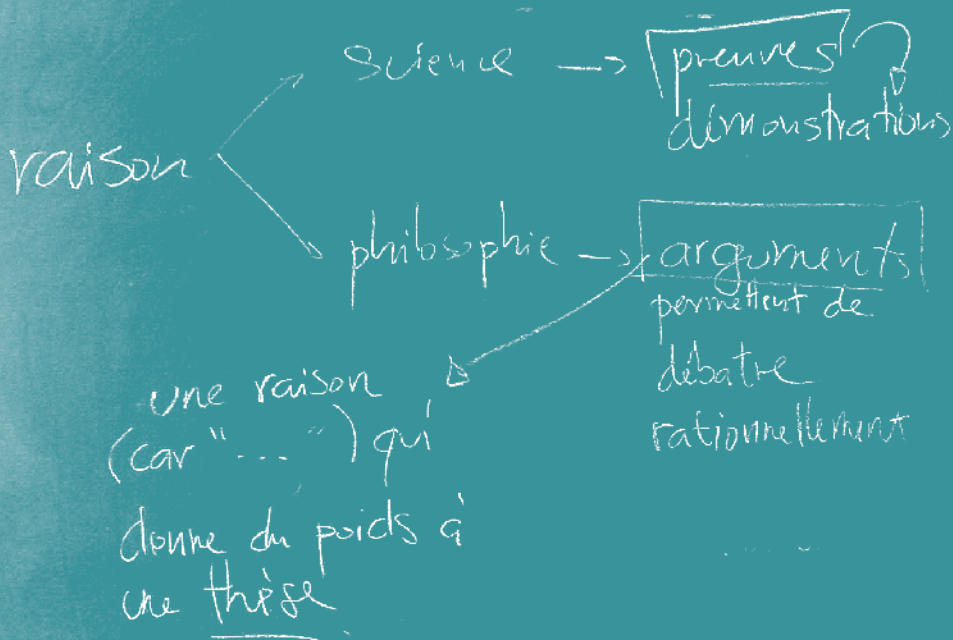 science → preuves
démonstrations
raison
philosophie → arguments
permettent de
débatre
rationnellement
une raison
(car "...") qui
donne du poids à
une thèse